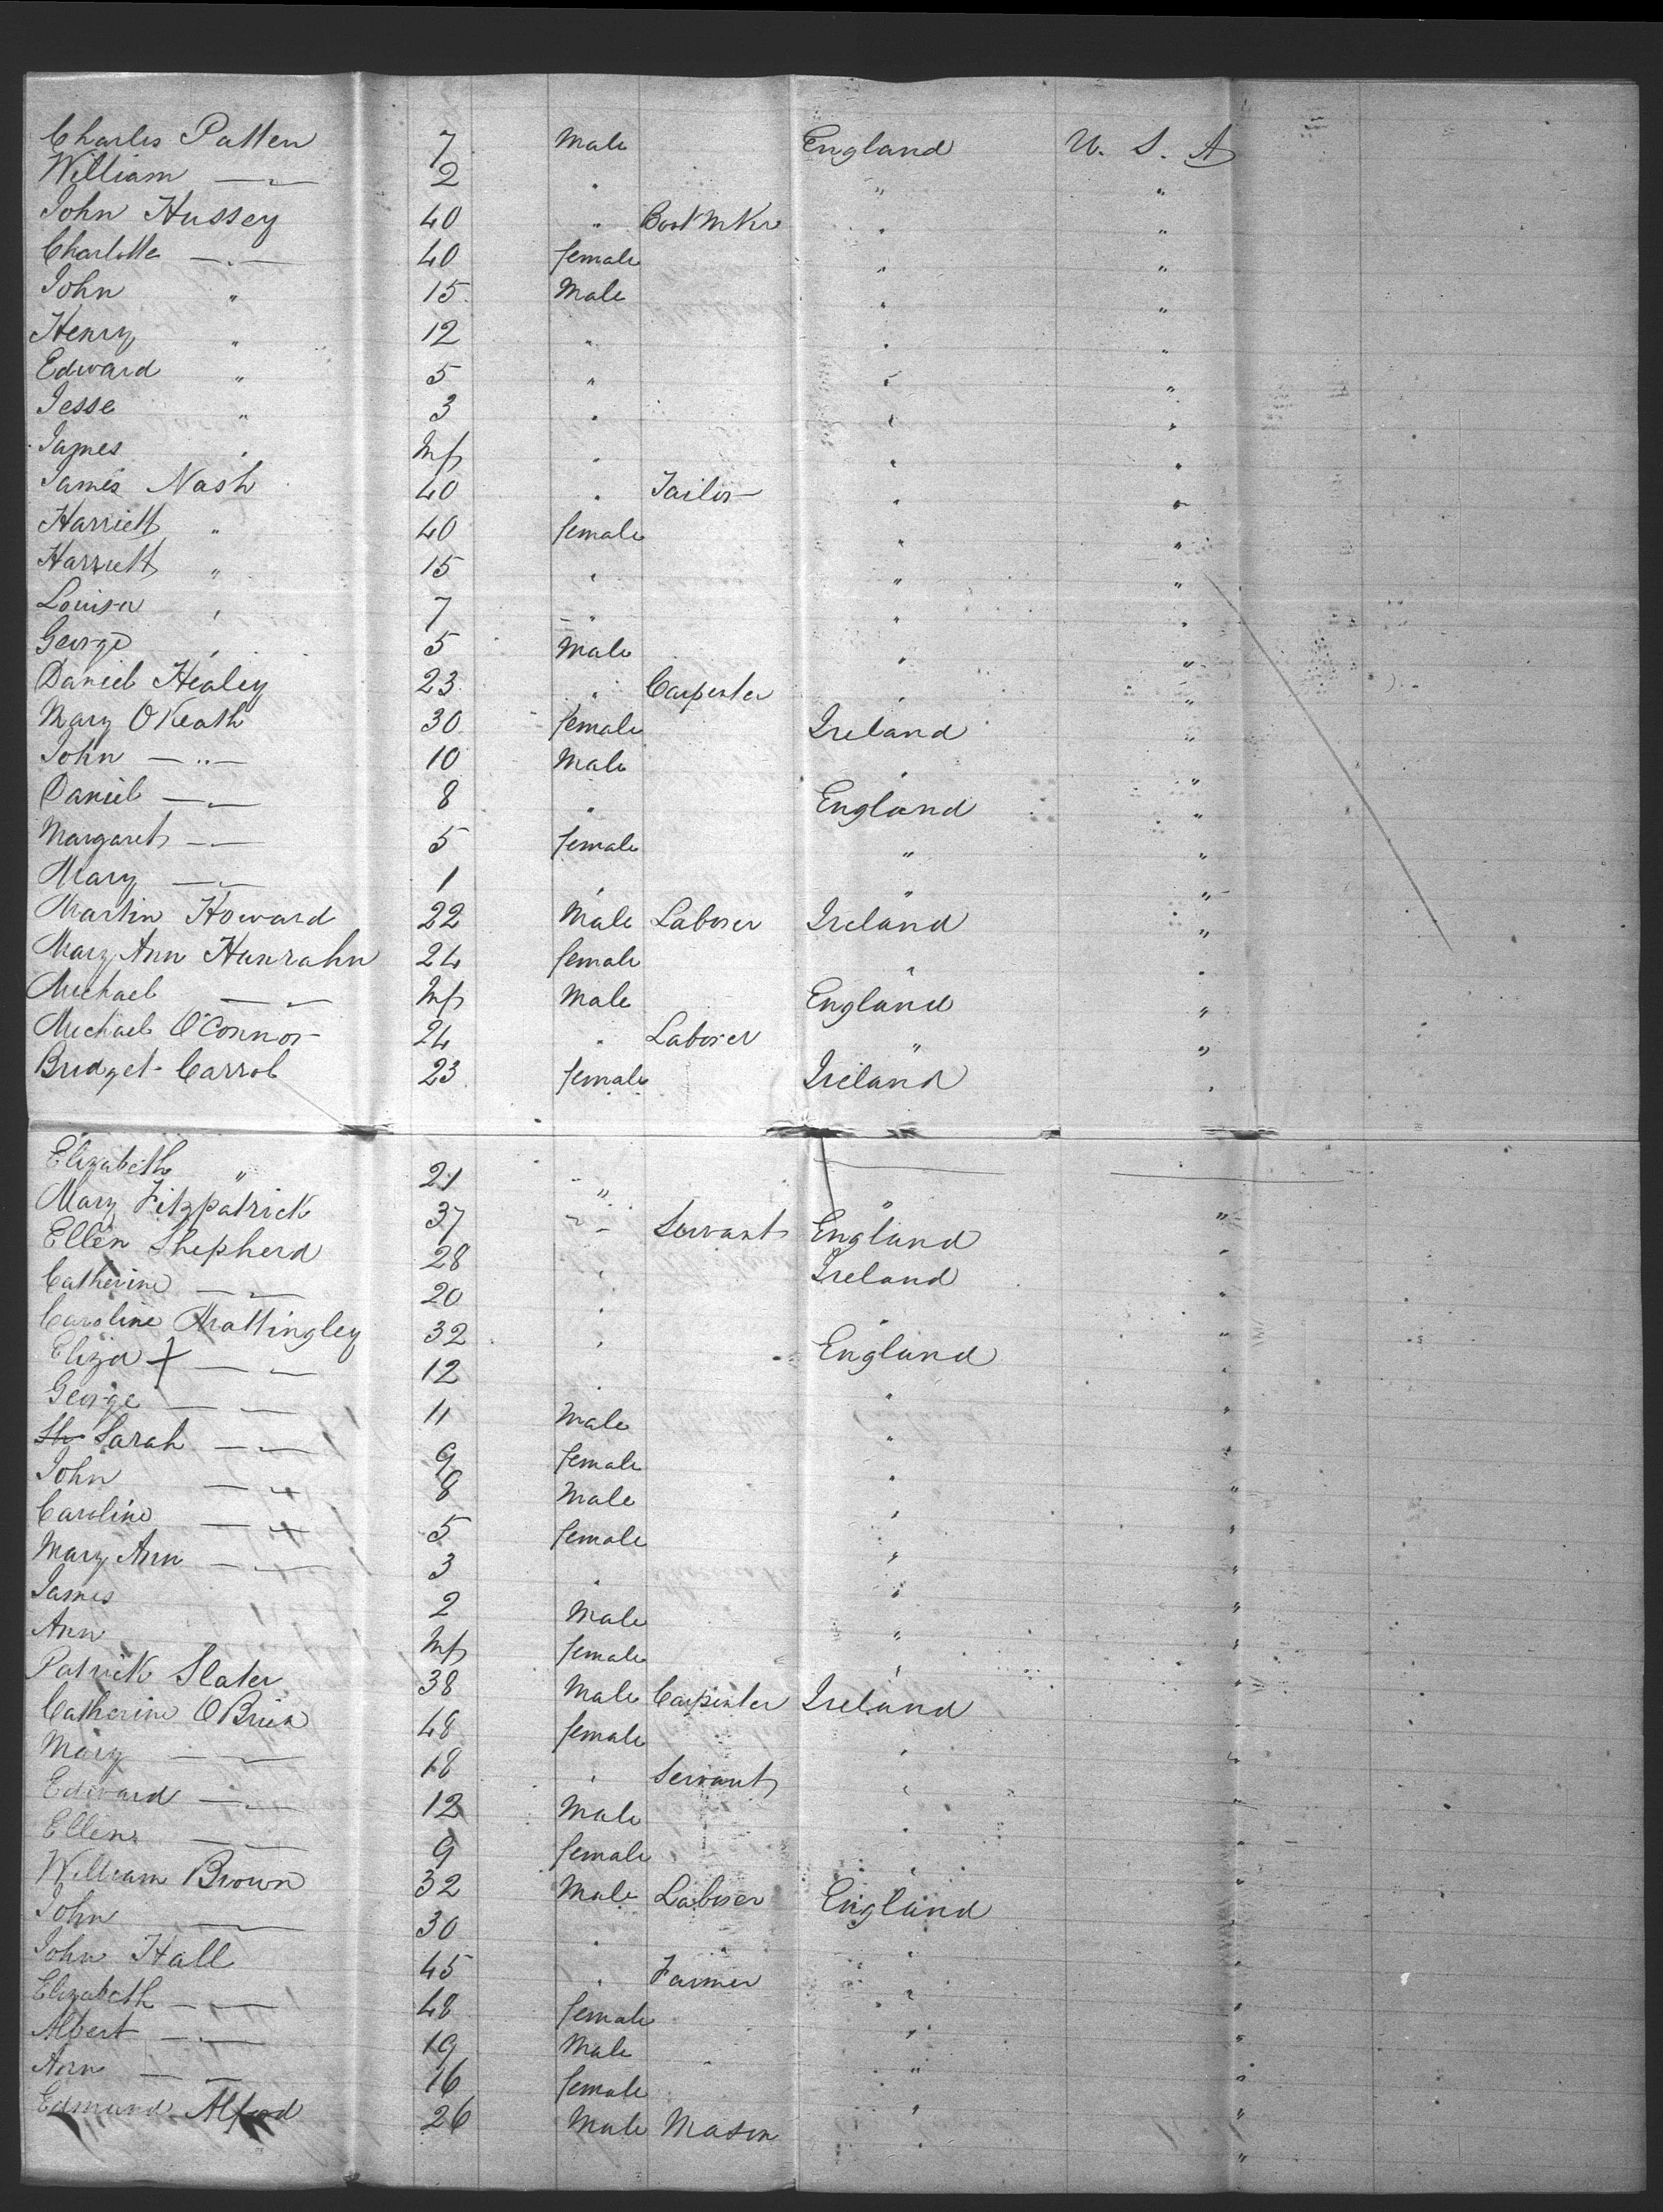 Charles Patten 7 Male England U. S. A
William — " — 2 " " "
John Hussey 40 " Boot Mkr " "
Charlotte — " — 40 female " "
John " 15 Male " "
Henry " 12 " " "
Edward " 5 " " "
Jesse " 3 " " "
James " Inf " " "
James Nash 40 " Tailor " "
Harriett " 40 female " "
Harriett " 15 " " "
Louisa " 7 " " "
George " 5 Male " "
Daniel Healey 23 " Carpenter " "
Mary O Keath 30 female Ireland "
John — " — 10 Male " "
Daniel — " — 8 " England "
Margaret — " — 5 female " "
Mary — " — 1 " " "
Martin Howard 22 Male Laborer Ireland "
Mary Ann Hanrahn 24 female " "
Michael — " — Inf Male England "
Michael O'Connor 24 " Laborer " "
Bridget Carrol 23 female Ireland "
Elizabeth " 21 " "
Mary Fitzpatrick 37 " Servant England "
Ellen Shepherd 28 " Ireland "
Catherine — " — 20 " " "
Caroline Mattingley 32 " England "
Eliza + — " — 12 " " "
George — " — 11 Male " "
Sh Sarah — " — 9 female " "
John — " — 8 Male " "
Caroline — " — 5 female " "
Mary Ann — " — 3 " " "
James 2 Male " "
Ann Inf female " "
Patrick Slater 38 Male Carpenter Ireland "
Catherine O Brien 48 female " "
Mary — " — 18 " Servant " "
Edward — " — 12 Male " "
Ellen — " — 9 female " "
William Brown 32 Male Laborer England "
John — " — 30 " " "
John Hall 45 " Farmer " "
Elizabeth — " — 48 female " "
Albert — " — 19 Male " "
Ann — " — 16 female " "
Edmund Alford 26 Male Mason " "